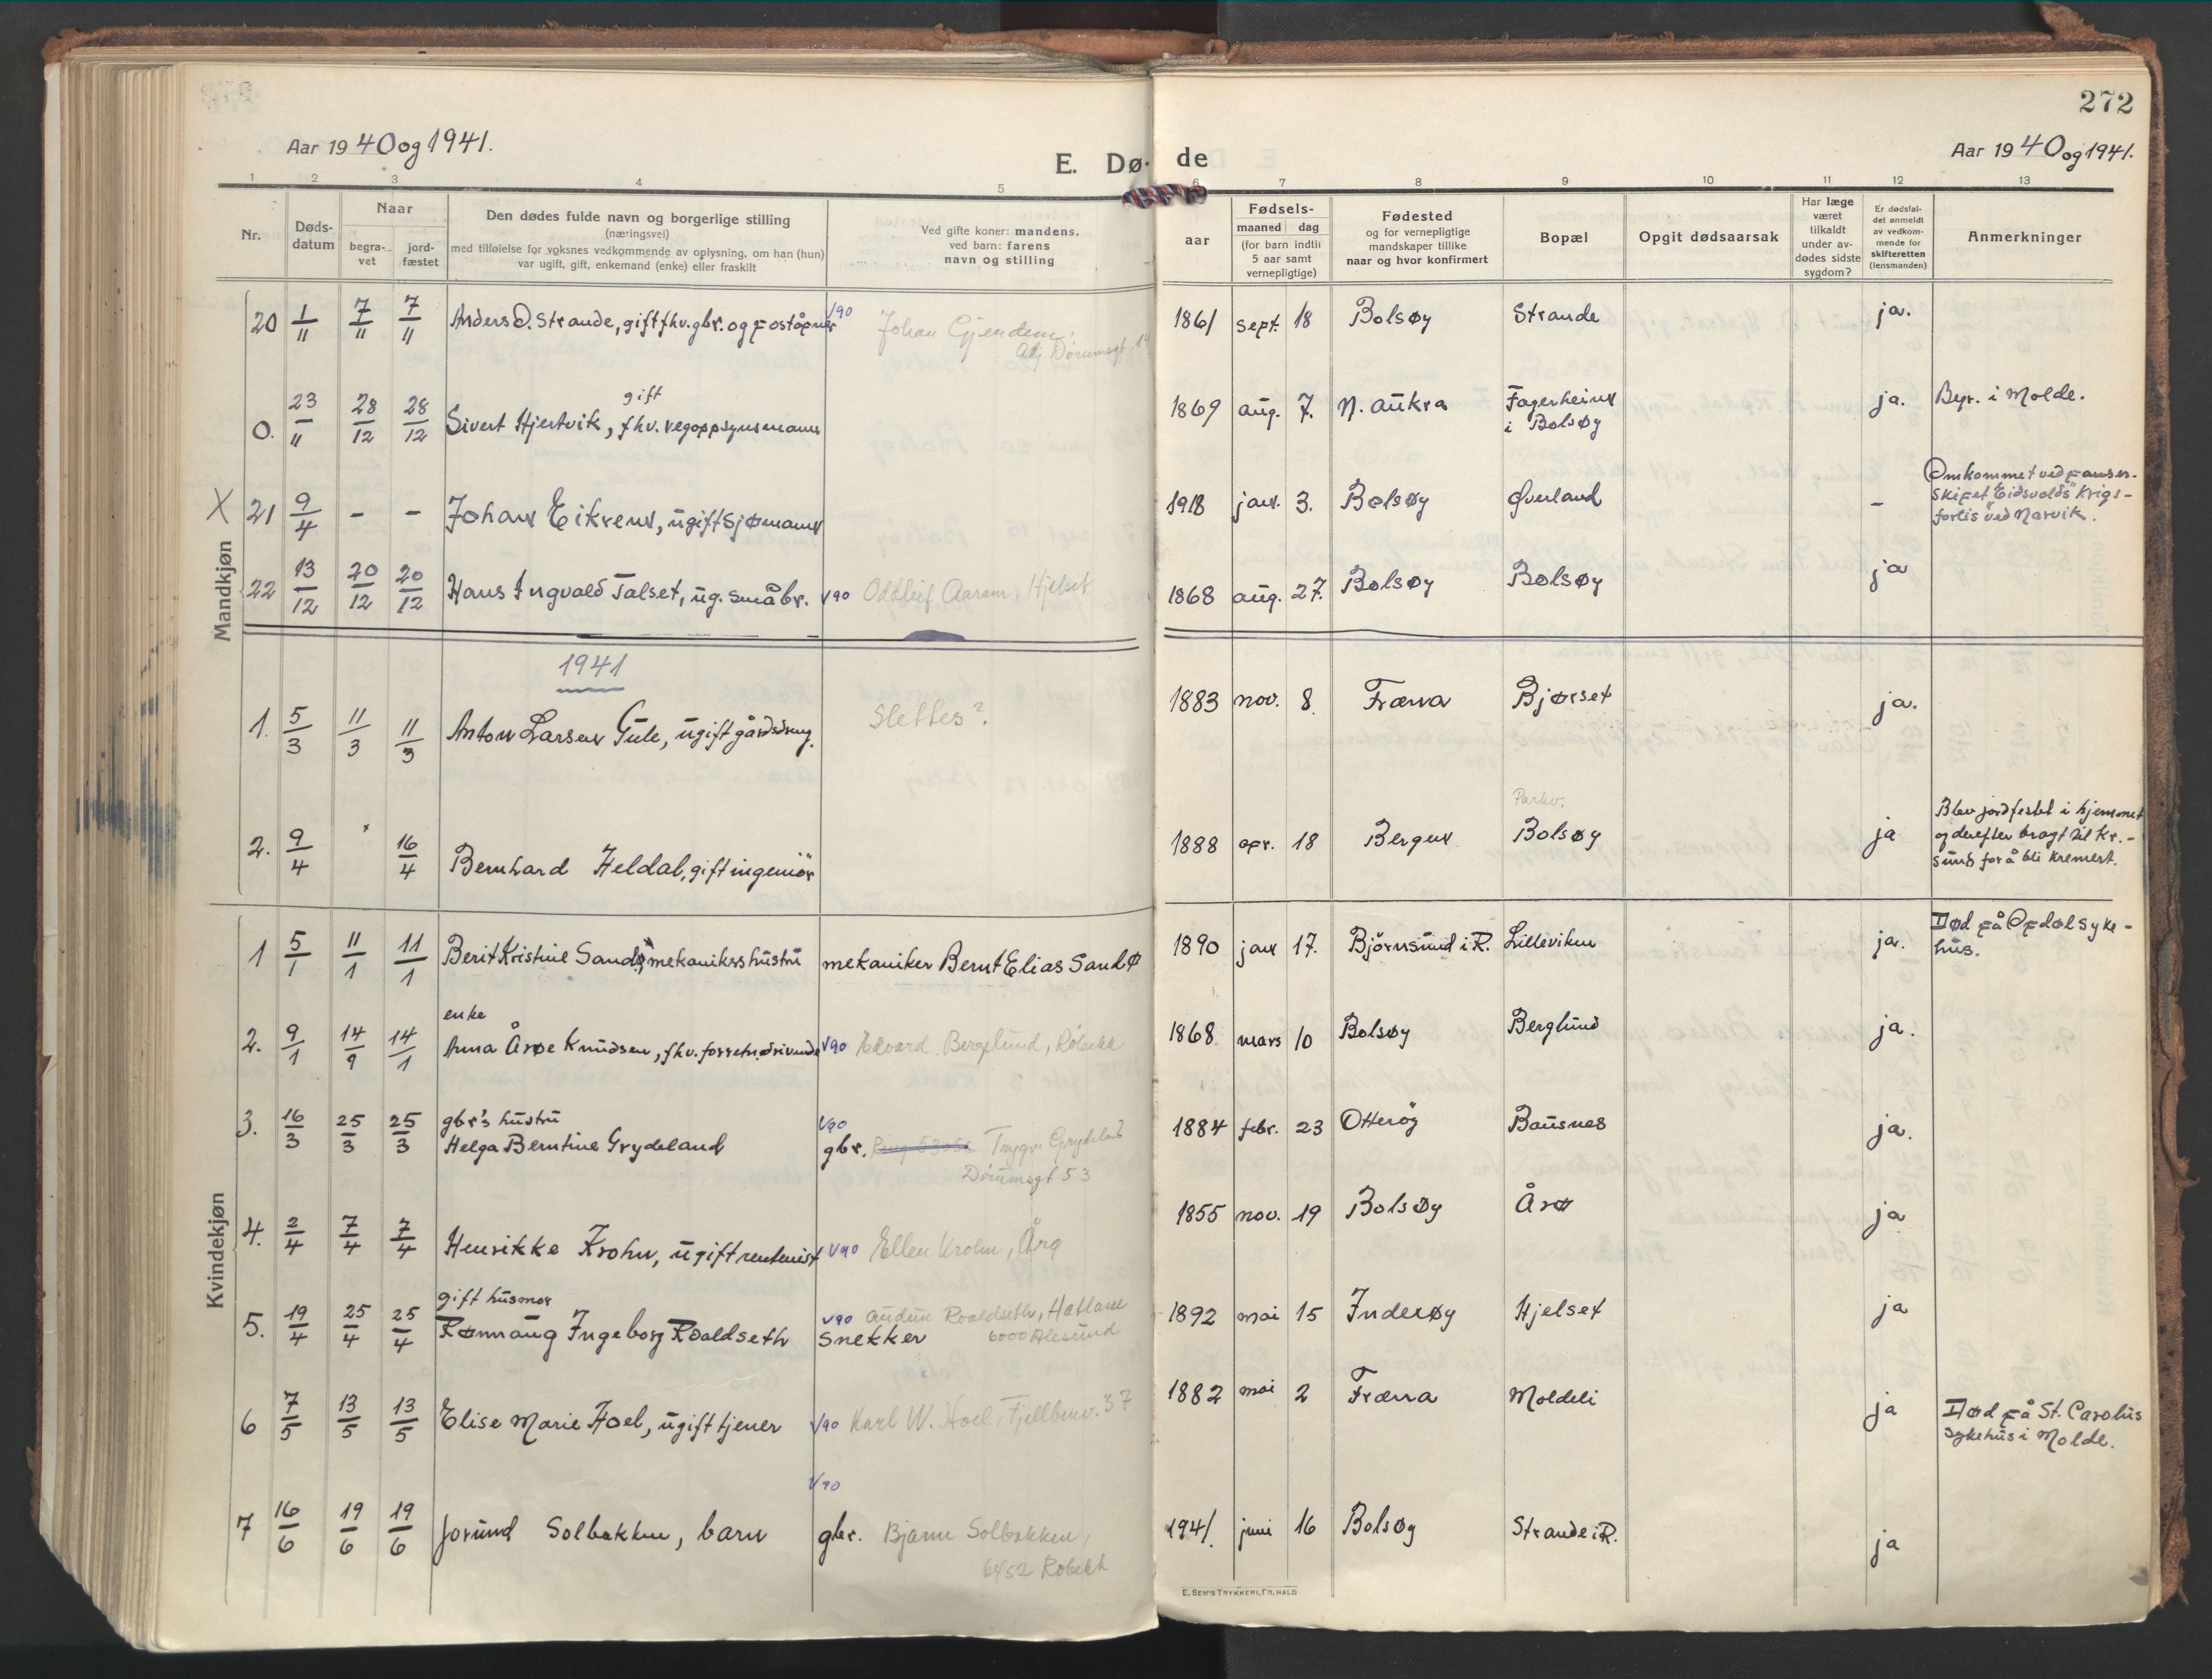 272
Aar 1940 og 1941.
E. Dø- de
Aar 1940 og 1941.
1 2 3 4 5 6 7 8 9 10 11 12 13
Nr.
Døds-
datum
Naar
begra-
vet
jord-
fæstet
Den dødes fulde navn og borgerlige stilling
(næringsvei)
med tilføielse for voksnes vedkommende av oplysning, om han (hun)
var ugift, gift, enkemand (enke) eller fraskilt
Ved gifte koner: mandens,
ved barn: farens
navn og stilling
Fødsels-
aar
maaned dag
(for barn indtil
5 aar samt
vernepligtige)
Fødested
og for vernepligtige
mandskaper tillike
naar og hvor konfirmert
Bopæl
Opgit dødsaarsak
Har læge
været
tilkaldt
under av-
dødes sidste
sygdom?
Er dødsfal-
det anmeldt
av vedkom-
mende for
skifteretten
(lensmanden)
Anmerkninger
Mandkjøn
20 1/11 7/11 7/11 Anders O. Strande, gift fhv. gbr. og poståpner V90 Johan Gjendem, 1861 sept. 18 Bolsøy Strande ja.
0. 23/11 28/12 28/12 Sivert Hjertvik, gift fhv. vegoppsynsmann 1869 aug. 7. N. Aukra Fagerheim i Bolsøy ja. Begr. i Molde.
X 21 9/4 - - Johan Eikrem, ugift sjømann 1918 jan. 3. Bolsøy Øverland - Omkommet ved panser-
skipet "Eidsvolds" krigs-
forlis ved Narvik.
22 13/12 20/12 20/12 Hans Ingvald Talset, ug. småbr. V90 Oddleif Aaram, Hjelset 1868 aug. 27. Bolsøy Bolsøy ja
1941
1. 5/3 11/3 11/3 Anton Larsen Gule, ugift gårdsdreng. Slettes? 1883 nov. 8. Fræna Bjørset ja.
2. 9/4 16/4 Bernhard Heldal, gift ingeniør 1888 apr. 18 Bergen Parkv. Bolsøy ja Blev jordfestet i hjemmet
og derefter bragt til Kr.-
sund for å bli kremert.
Kvindekjøn
1 5/1 11/1 11/1 Berit Kristine Sandø, mekanikers hustru mekaniker Bernt Elias Sandø 1890 jan 17. Bjørnsund i R. Lilleviken ja. Død på Opdøl syke-
hus.
enke
2. 9/1 14/9 14/1 Anna Årøe Knudsen, fhv. forretn.drivende V90 Edvard Berglund, Røbekk 1868 mars 10 Bolsøy Berglund ja.
gbr's hustru V90
3. 16/3 25/3 25/3 Helga Berntine Grydeland gbr. Trygve Grydeland 1884 febr. 23 Otterøy Bausnes ja.
Dørumsgt 53
4. 2/4 7/4 7/4 Henrikke Krohn, ugift rentenist V90 Ellen Krohn, Årø 1855 nov. 19 Bolsøy Årø ja
gift husmor V90 Audun Roaldseth, Hatlane
5. 19/4 25/4 25/4 Rønnaug Ingeborg Roaldseth snekker 6000 Ålesund 1892 mai 15 Inderøy Hjelset ja
6 7/5 13/5 13/5 Elise Marie Hoel, ugift tjener V90 Karl W. Hoel, Fjellbruv. 37 1882 mai 2 Fræna Moldeli ja Død på St. Carolus
sykehus i Molde.
V90
7 16/6 19/6 19/6 Jorunn Solbakken, barn gbr. Bjarne Solbakken, 1941. juni 16 Bolsøy Strande i R. ja
6452 Røbekk
E. SEM'S TRYKKERI, FR. HALD